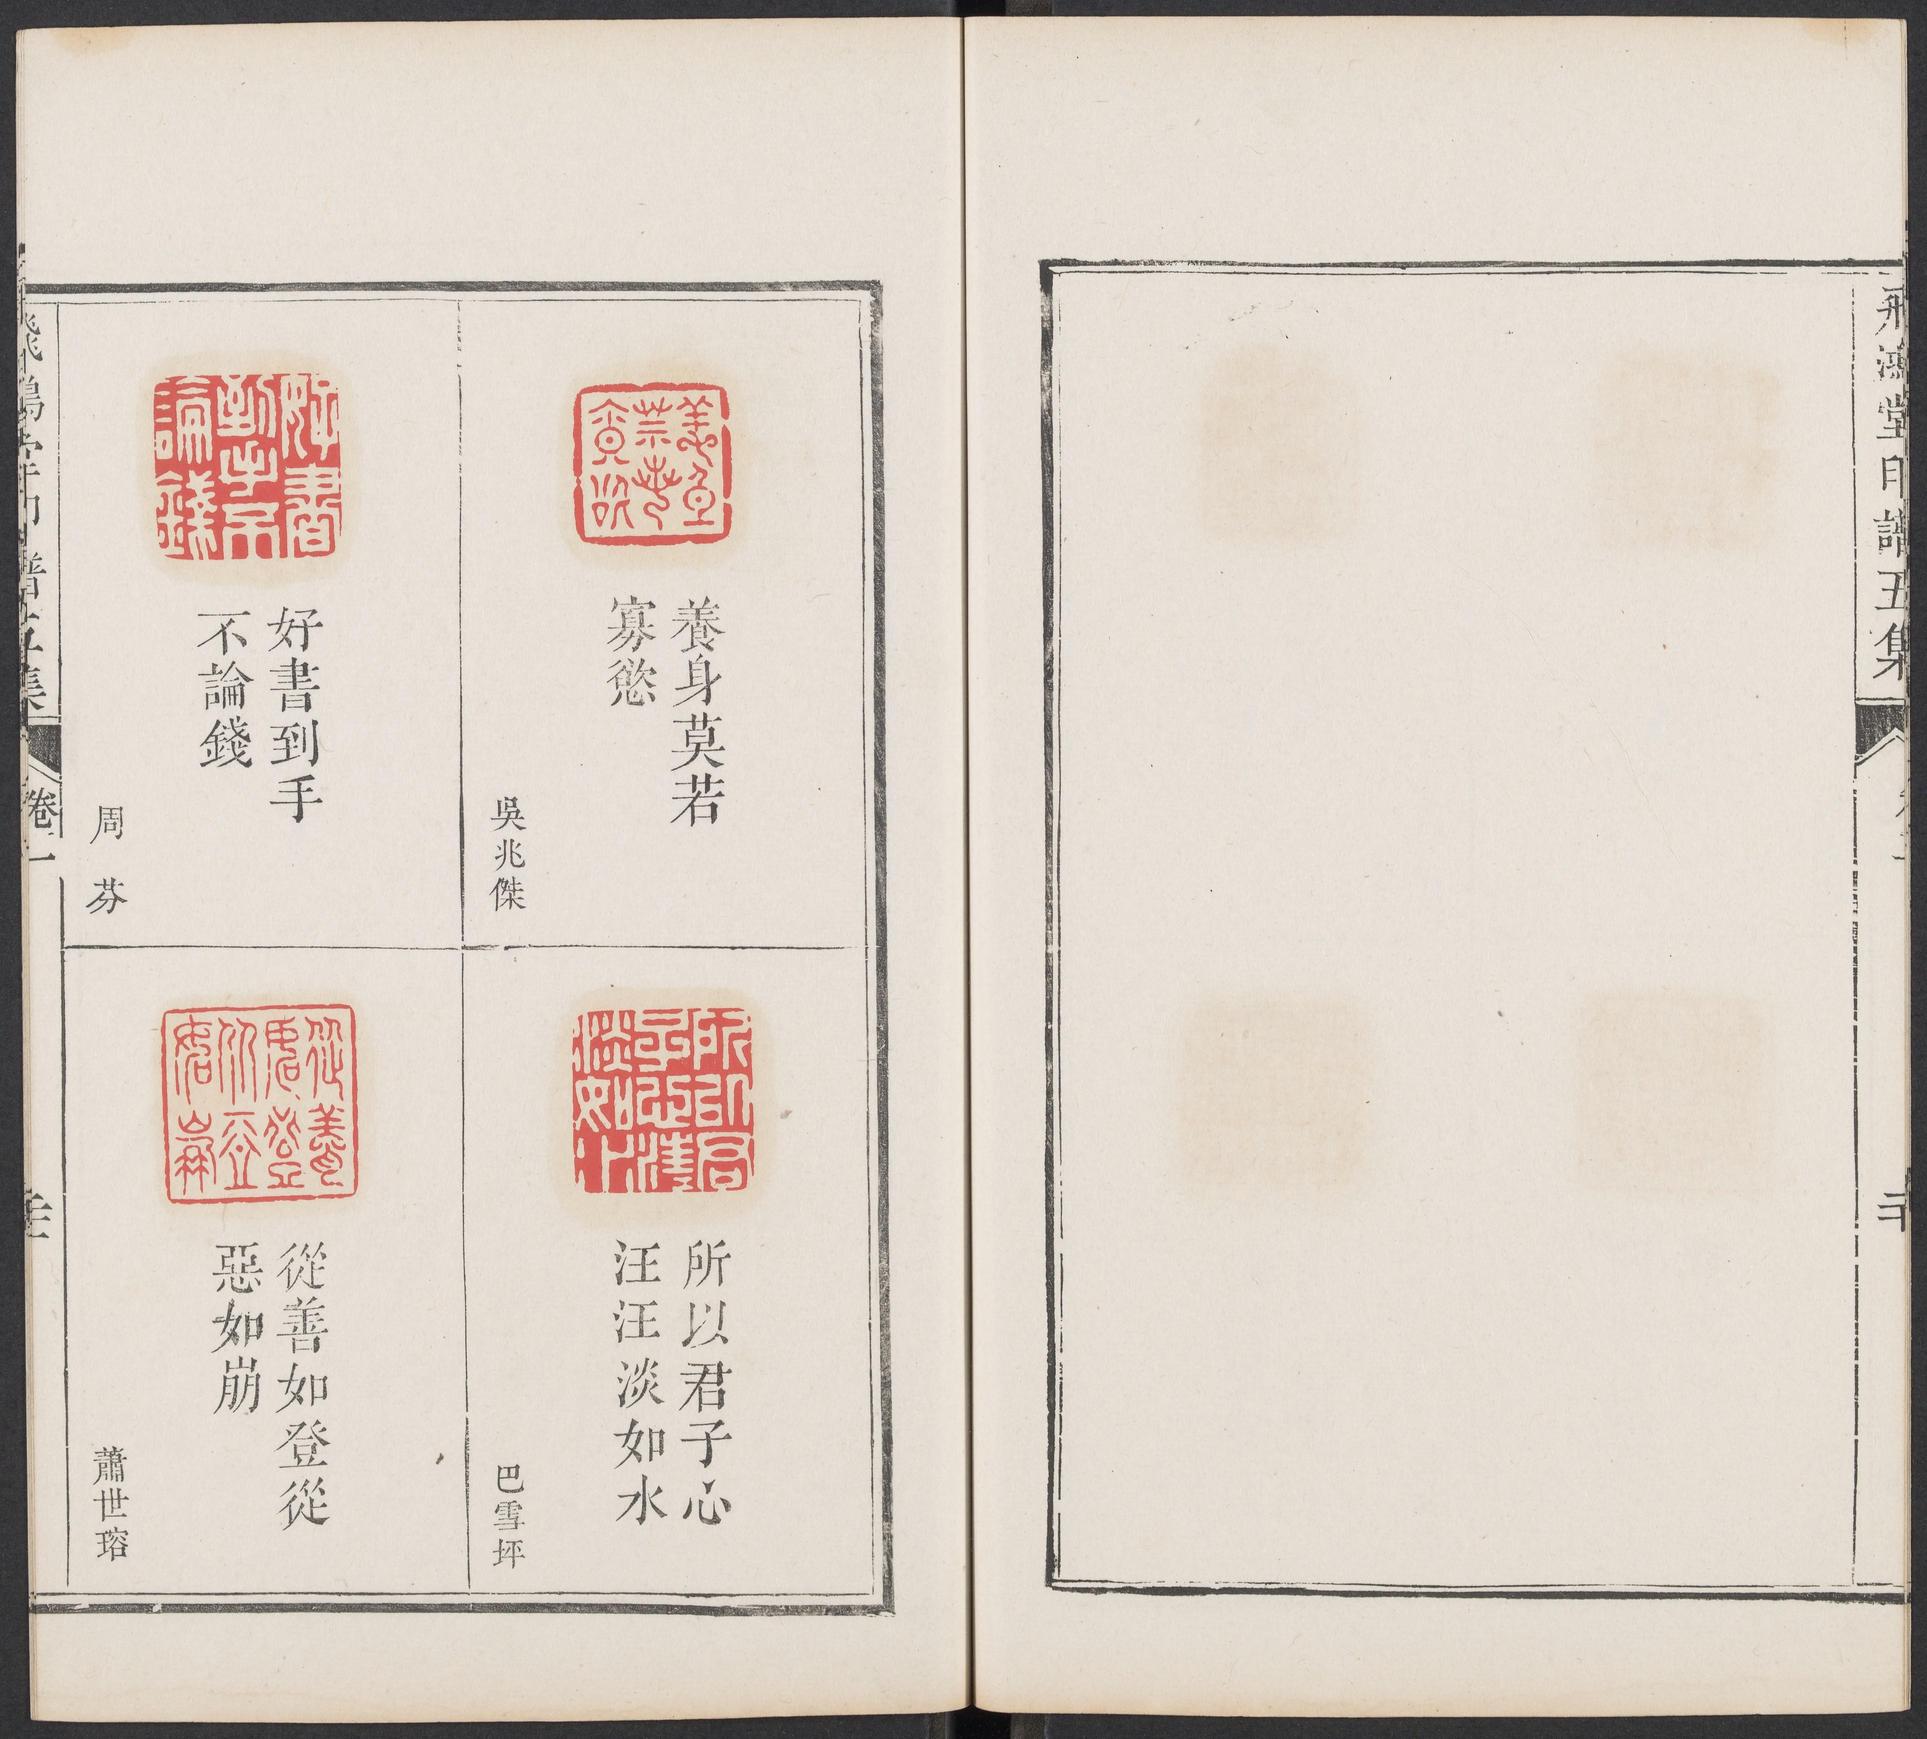 飛鴻堂印譜五集
養身莫若
寡慾
吳兆傑
所以君子心
汪汪淡如水
巴雪坪
好書到手
不論錢
周芬
從善如登從
惡如崩
蕭世瑢
飛鴻堂印譜五集
卷一